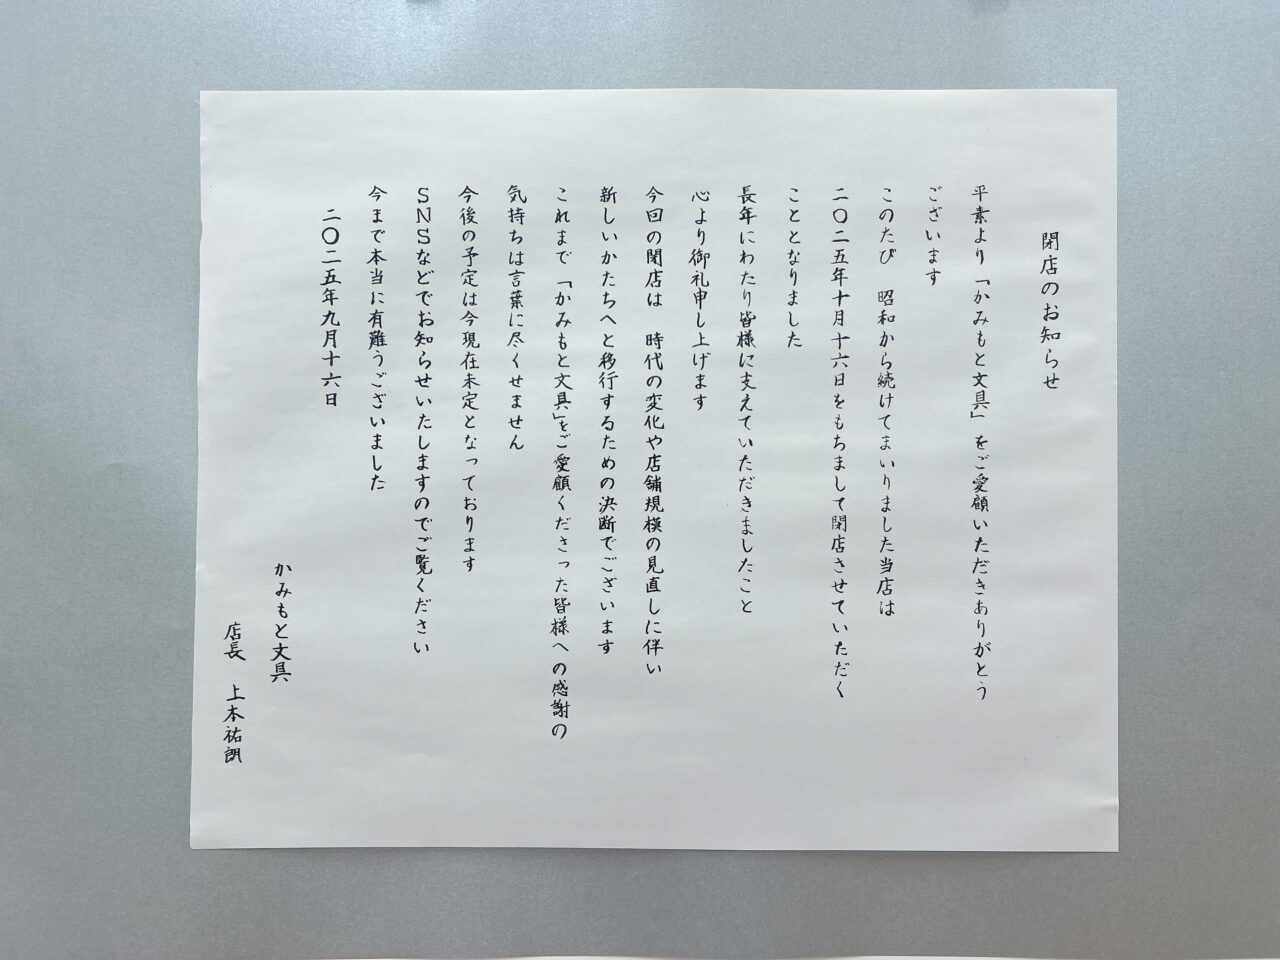 閉店のお知らせ
平素より「かみもと文具」をご愛顧いただきありがとう
ございます
このたび　昭和から続けてまいりました当店は
二〇二五年十月十六日をもちまして閉店させていただく
こととなりました
長年にわたり皆様に支えていただきましたこと
心より御礼申し上げます
今回の閉店は　時代の変化や店舗規模の見直しに伴い
新しいかたちへと移行するための決断でございます
これまで「かみもと文具」をご愛顧くださった皆様への感謝の
気持ちは言葉に尽くせません
今後の予定は今現在未定となっております
SNSなどでお知らせいたしますのでご覧ください
今まで本当に有難うございました
二〇二五年九月十六日
かみもと文具
店長　上本祐朗